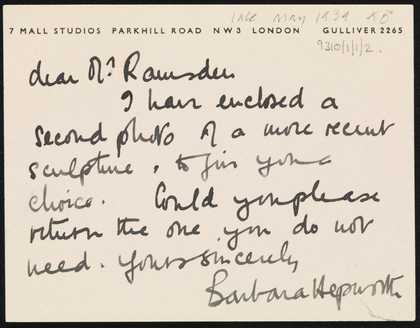 late May 1939
7 MALL STUDIOS PARKHILL ROAD NW3 LONDON GULLIVER 2265
9310/1/1/2.
dear Mr Ramsden
I have enclosed a
second photo of a more recent
sculpture, to give you a
choice. Could you please
return the one you do not
need. Yours sincerely
Barbara Hepworth